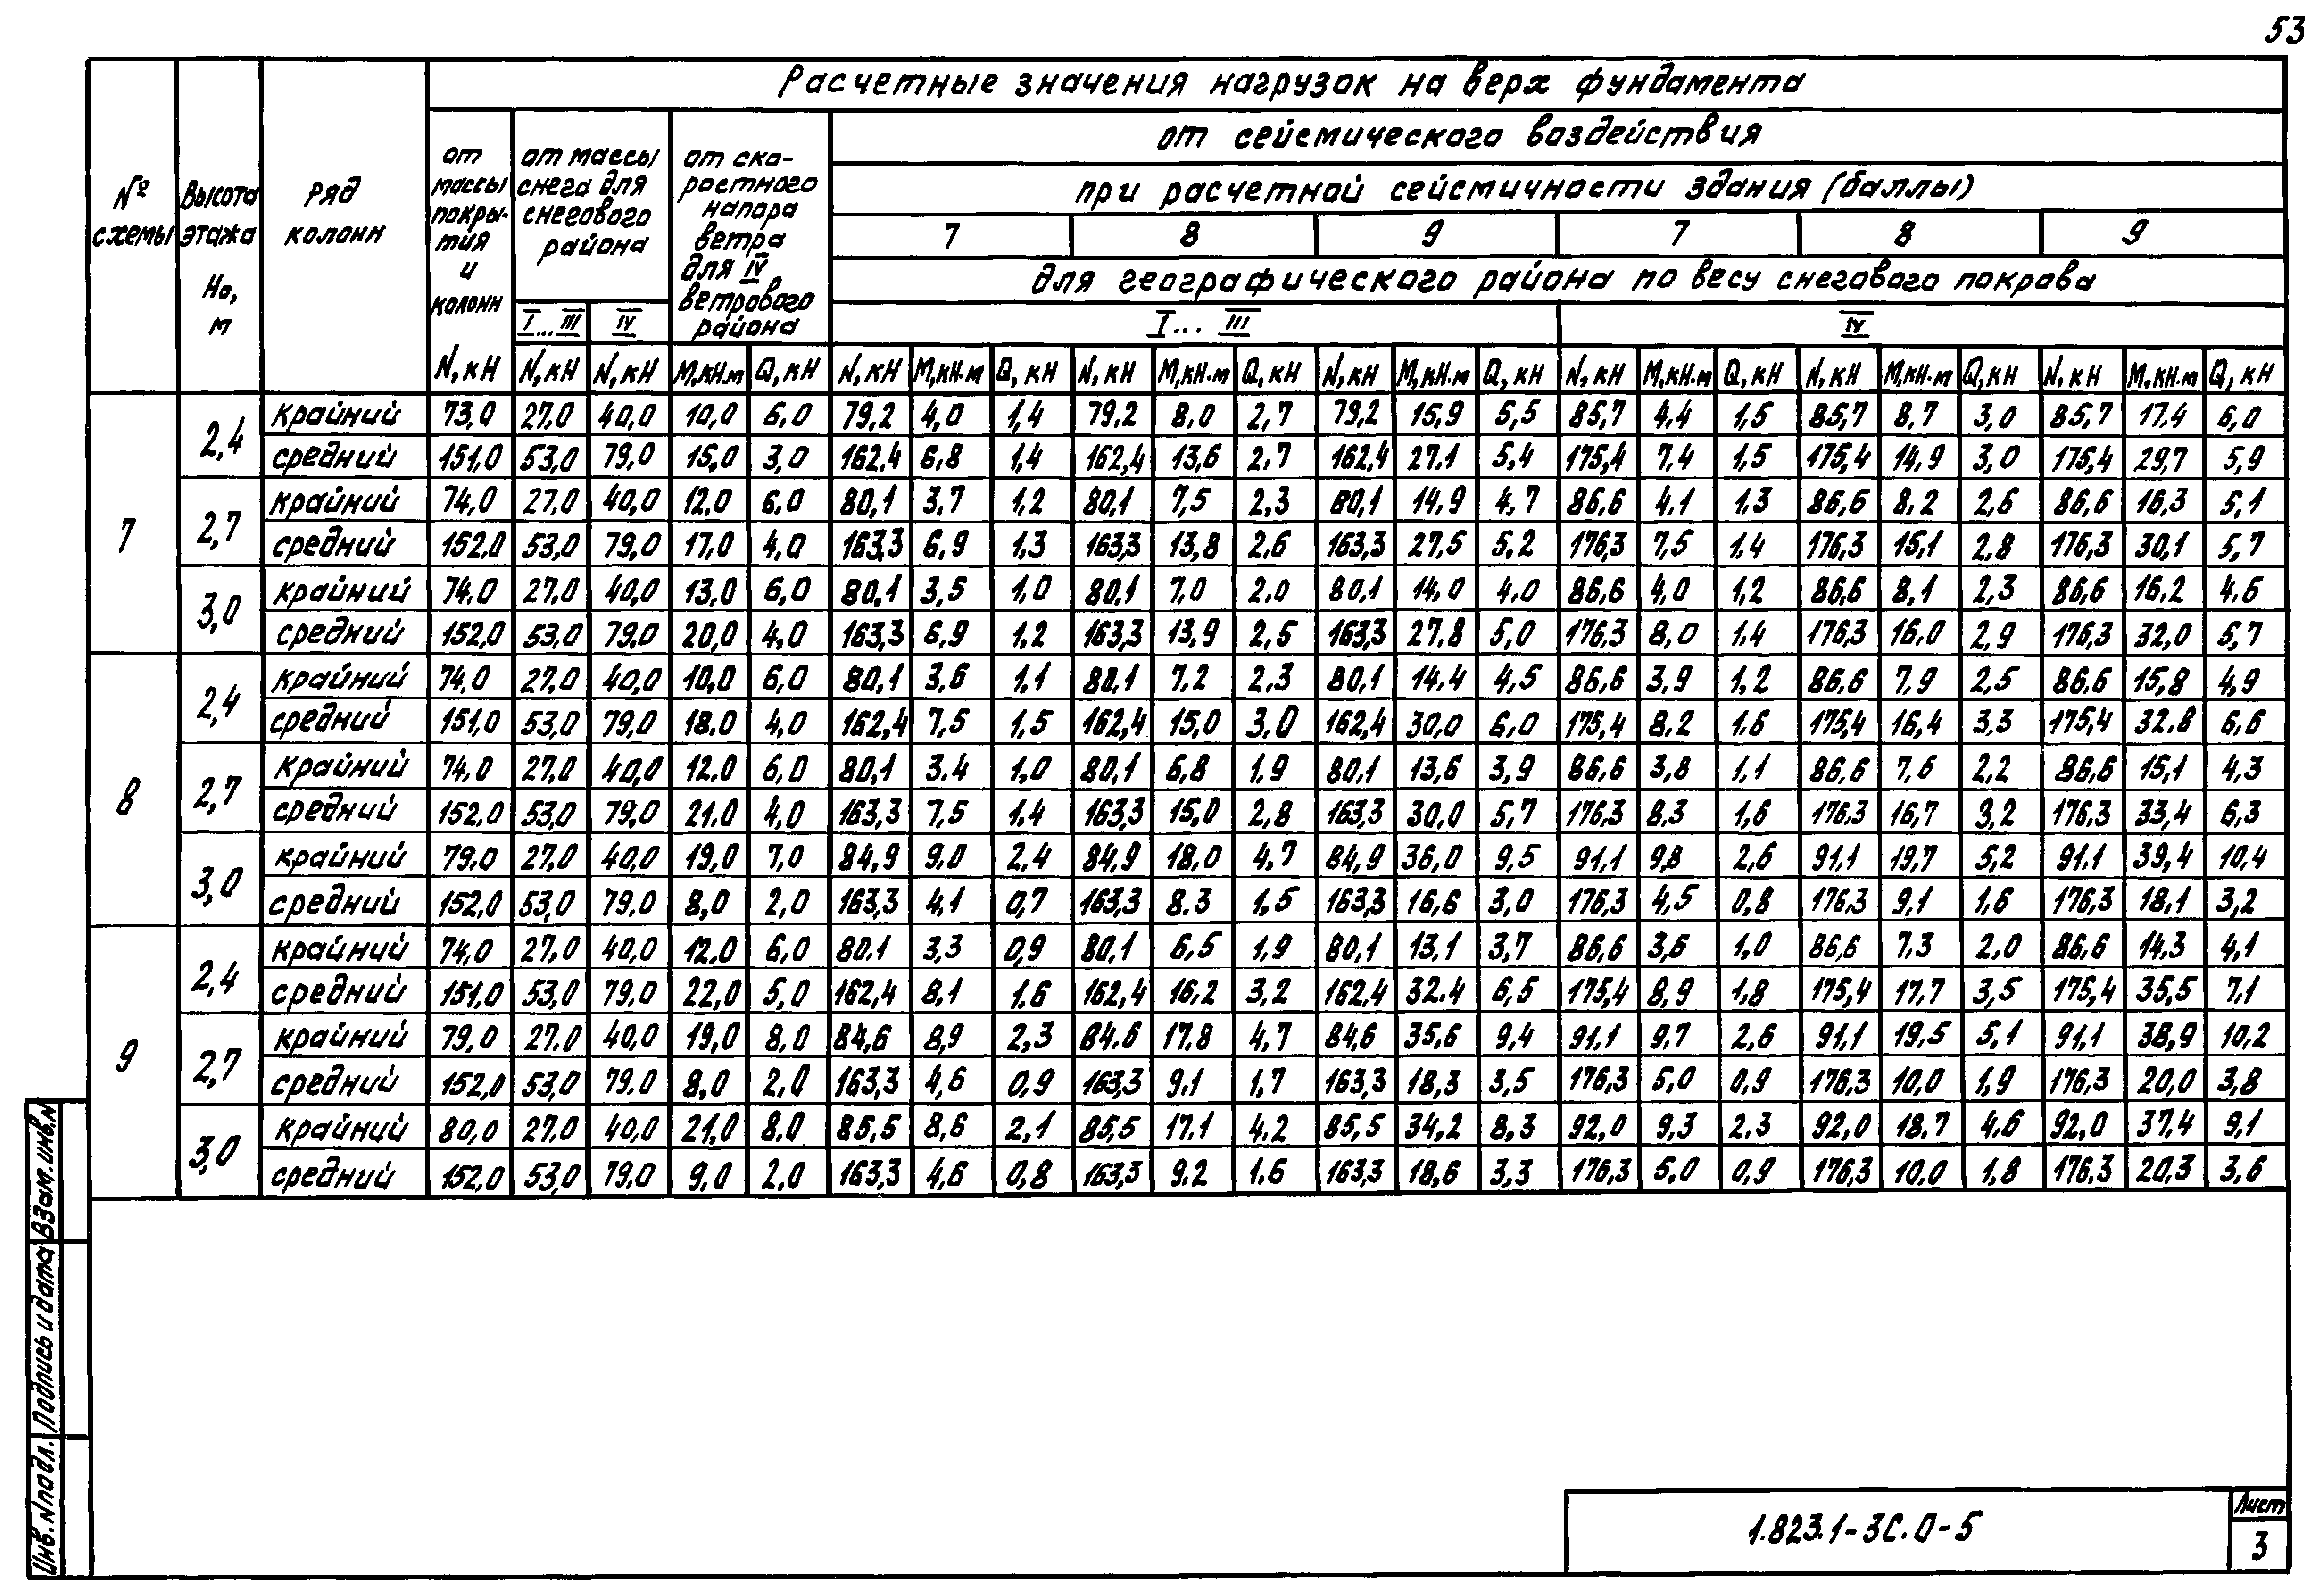 53
Расчетные значения нагрузок на верх фундамента
№ схемы
Высота этажа Но, м
ряд колонн
от массы покры-тия и колонн
от массы снега для снегового района
от ско-ростного напора ветра для IV ветрового района
от сейсмического воздействия
при расчетной сейсмичности здания (баллы)
7 8 9 7 8 9
для географического района по весу снегового покрова
I...III IV I...III IV
N, кН N, кН N, кН М, кН.м Q, кН N, кН М, кН.м Q, кН N, кН М, кН.м Q, кН N, кН М, кН.м Q, кН N, кН М, кН.м Q, кН N, кН М, кН.м Q, кН N, кН М, кН.м Q, кН
7 2,4 крайний 73,0 27,0 40,0 10,0 6,0 79,2 4,0 1,4 79,2 8,0 2,7 79,2 15,9 5,5 85,7 4,4 1,5 85,7 8,7 3,0 85,7 17,4 6,0
средний 151,0 53,0 79,0 15,0 3,0 162,4 6,8 1,4 162,4 13,6 2,7 162,4 27,1 5,4 175,4 7,4 1,5 175,4 14,9 3,0 175,4 29,7 5,9
2,7 крайний 74,0 27,0 40,0 12,0 6,0 80,1 3,7 1,2 80,1 7,5 2,3 80,1 14,9 4,7 86,6 4,1 1,3 86,6 8,2 2,6 86,6 16,3 5,1
средний 152,0 53,0 79,0 17,0 4,0 163,3 6,9 1,3 163,3 13,8 2,6 163,3 27,5 5,2 176,3 7,5 1,4 176,3 15,1 2,8 176,3 30,1 5,7
3,0 крайний 74,0 27,0 40,0 13,0 6,0 80,1 3,5 1,0 80,1 7,0 2,0 80,1 14,0 4,0 86,6 4,0 1,2 86,6 8,1 2,3 86,6 16,2 4,6
средний 152,0 53,0 79,0 20,0 4,0 163,3 6,9 1,2 163,3 13,9 2,5 163,3 27,8 5,0 176,3 8,0 1,4 176,3 16,0 2,9 176,3 32,0 5,7
8 2,4 крайний 74,0 27,0 40,0 10,0 6,0 80,1 3,6 1,1 80,1 7,2 2,3 80,1 14,4 4,5 86,6 3,9 1,2 86,6 7,9 2,5 86,6 15,8 4,9
средний 151,0 53,0 79,0 18,0 4,0 162,4 7,5 1,5 162,4 15,0 3,0 162,4 30,0 6,0 175,4 8,2 1,6 175,4 16,4 3,3 175,4 32,8 6,6
2,7 крайний 74,0 27,0 40,0 12,0 6,0 80,1 3,4 1,0 80,1 6,8 1,9 80,1 13,6 3,9 86,6 3,8 1,1 86,6 7,6 2,2 86,6 15,1 4,3
средний 152,0 53,0 79,0 21,0 4,0 163,3 7,5 1,4 163,3 15,0 2,8 163,3 30,0 5,7 176,3 8,3 1,6 176,3 16,7 3,2 176,3 33,4 6,3
3,0 крайний 79,0 27,0 40,0 19,0 7,0 84,9 9,0 2,4 84,9 18,0 4,7 84,9 36,0 9,5 91,1 9,8 2,6 91,1 19,7 5,2 91,1 39,4 10,4
средний 152,0 53,0 79,0 8,0 2,0 163,3 4,1 0,7 163,3 8,3 1,5 163,3 16,6 3,0 176,3 4,5 0,8 176,3 9,1 1,6 176,3 18,1 3,2
9 2,4 крайний 74,0 27,0 40,0 12,0 6,0 80,1 3,3 0,9 80,1 6,5 1,9 80,1 13,1 3,7 86,6 3,6 1,0 86,6 7,3 2,0 86,6 14,3 4,1
средний 151,0 53,0 79,0 22,0 5,0 162,4 8,1 1,6 162,4 16,2 3,2 162,4 32,4 6,5 175,4 8,9 1,8 175,4 17,7 3,5 175,4 35,5 7,1
2,7 крайний 79,0 27,0 40,0 19,0 8,0 84,6 8,9 2,3 84,6 17,8 4,7 84,6 35,6 9,4 91,1 9,7 2,6 91,1 19,5 5,1 91,1 38,9 10,2
средний 152,0 53,0 79,0 8,0 2,0 163,3 4,6 0,9 163,3 9,1 1,7 163,3 18,3 3,5 176,3 5,0 0,9 176,3 10,0 1,9 176,3 20,0 3,8
3,0 крайний 80,0 27,0 40,0 21,0 8,0 85,5 8,6 2,1 85,5 17,1 4,2 85,5 34,2 8,3 92,0 9,3 2,3 92,0 18,7 4,6 92,0 37,4 9,1
средний 152,0 53,0 79,0 9,0 2,0 163,3 4,6 0,8 163,3 9,2 1,6 163,3 18,6 3,3 176,3 5,0 0,9 176,3 10,0 1,8 176,3 20,3 3,6
Инв. N подл. Подпись и дата Взам. инв. N
1.823.1-3С.0-5
Лист
3